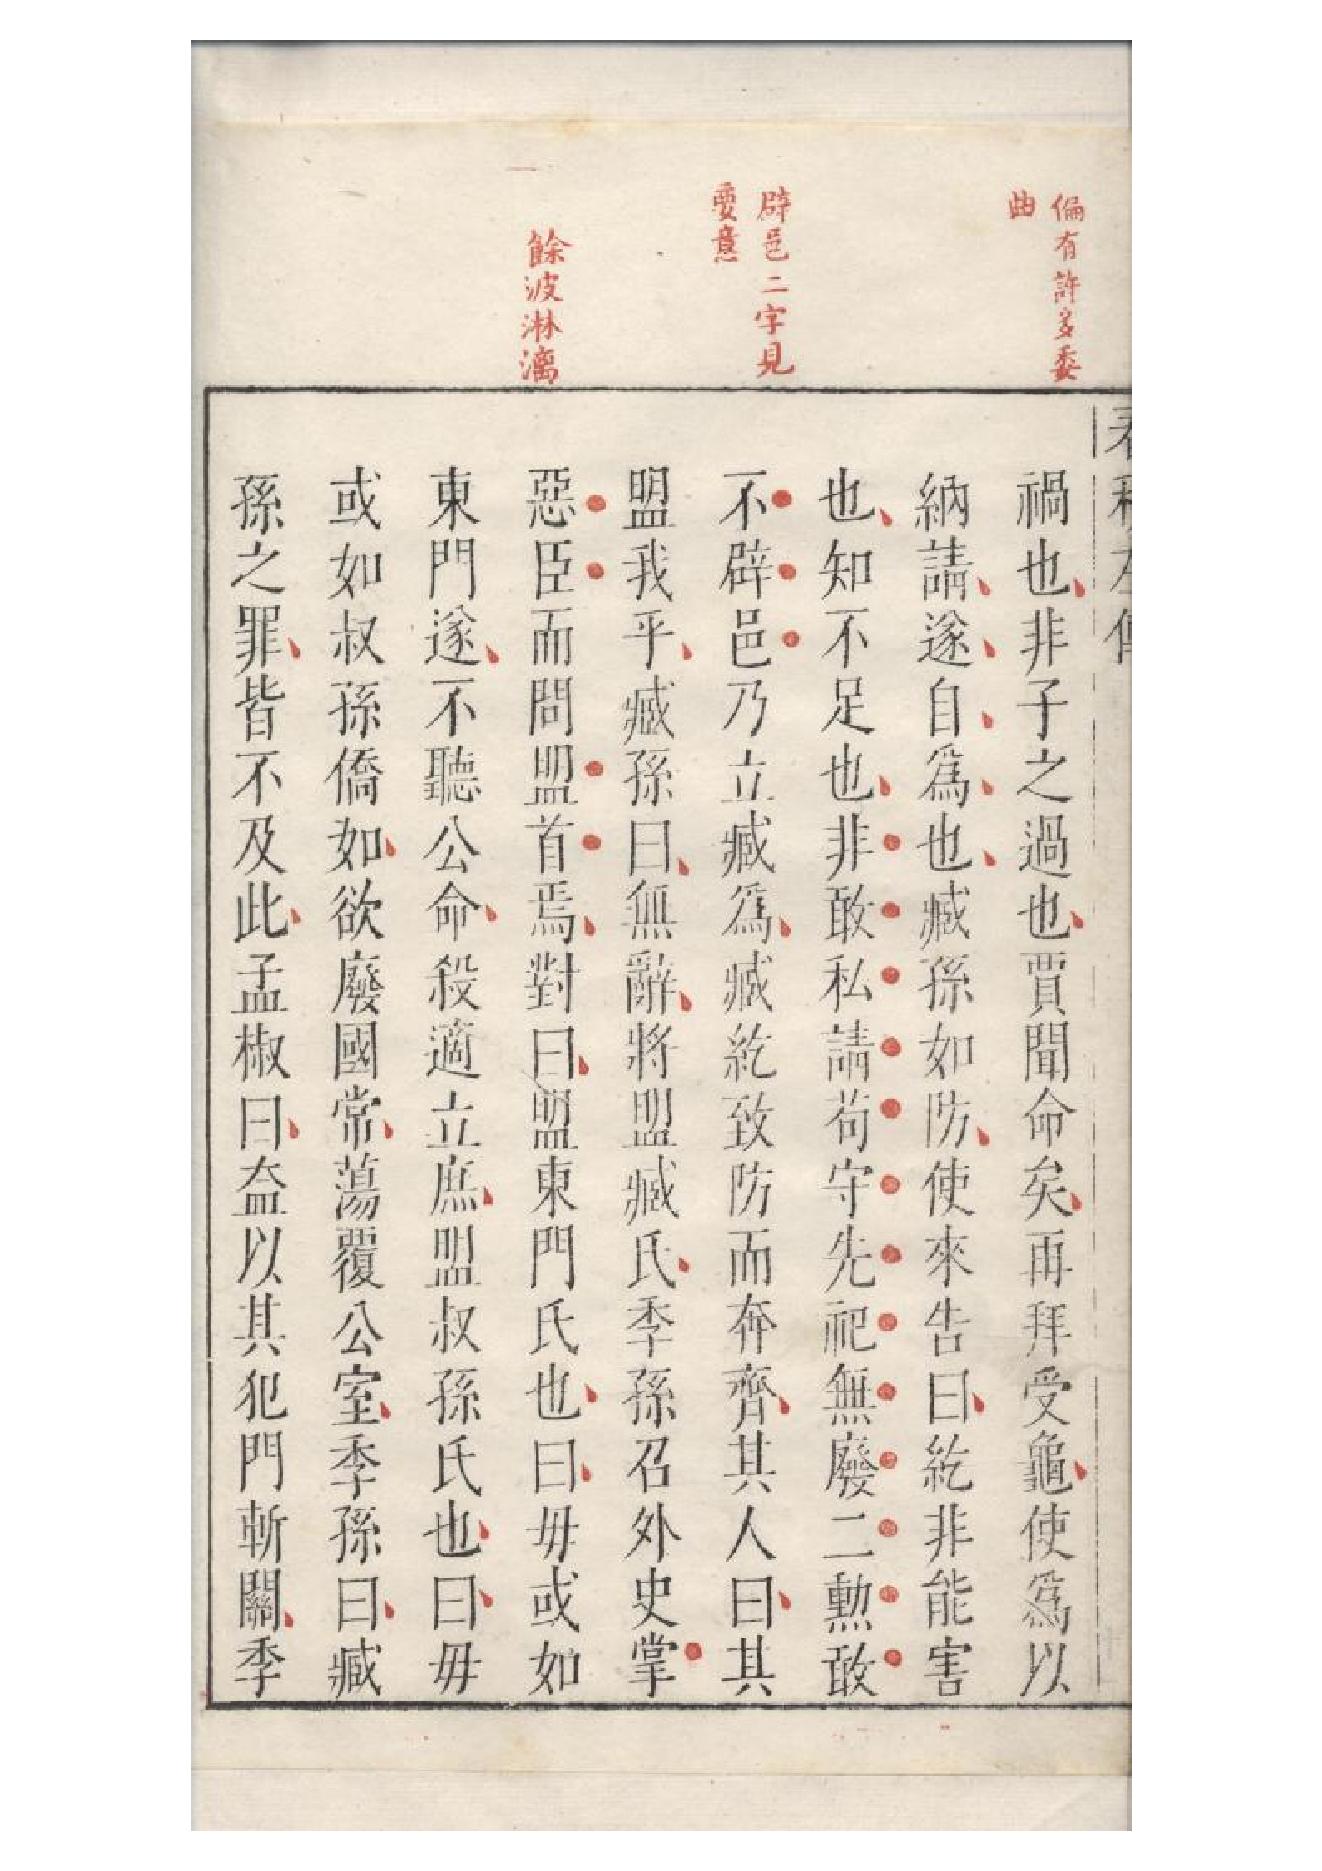 偏有許多委
曲
辟邑二字見
要意
餘波淋漓
春秋左傳
禍也非子之過也賈聞命矣再拜受龜使爲以
納請遂自爲也臧孫如防使來告曰紇非能害
也知不足也非敢私請苟守先祀無廢二勲敢
不辟邑乃立臧爲臧紇致防而奔齊其人曰其
盟我乎臧孫曰無辭將盟臧氏季孫召外史掌
惡臣而問盟首焉對曰盟東門氏也曰毋或如
東門遂不聽公命殺適立庶盟叔孫氏也曰毋
或如叔孫僑如欲廢國常蕩覆公室季孫曰臧
孫之罪皆不及此孟椒曰盍以其犯門斬關季